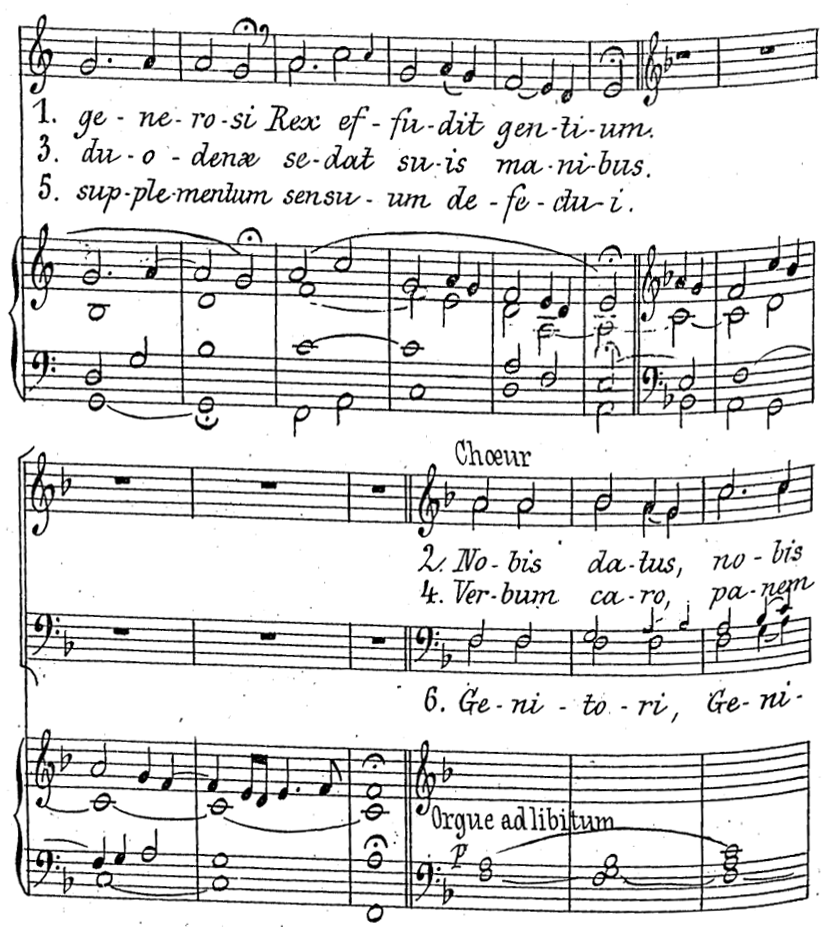 1. ge - ne - ro - si Rex ef - fu - dit gen - ti - um.
3. du - o - denæ se - dat su - is ma - ni - bus.
5. sup - ple - mentum sensu - um de - fe - ctu - i.
Chœur
2. No - bis da - tus, no - bis
4. Ver - bum ca - ro, pa - nem
6. Ge - ni - to - ri, Ge - ni -
Orgue ad libitum
p